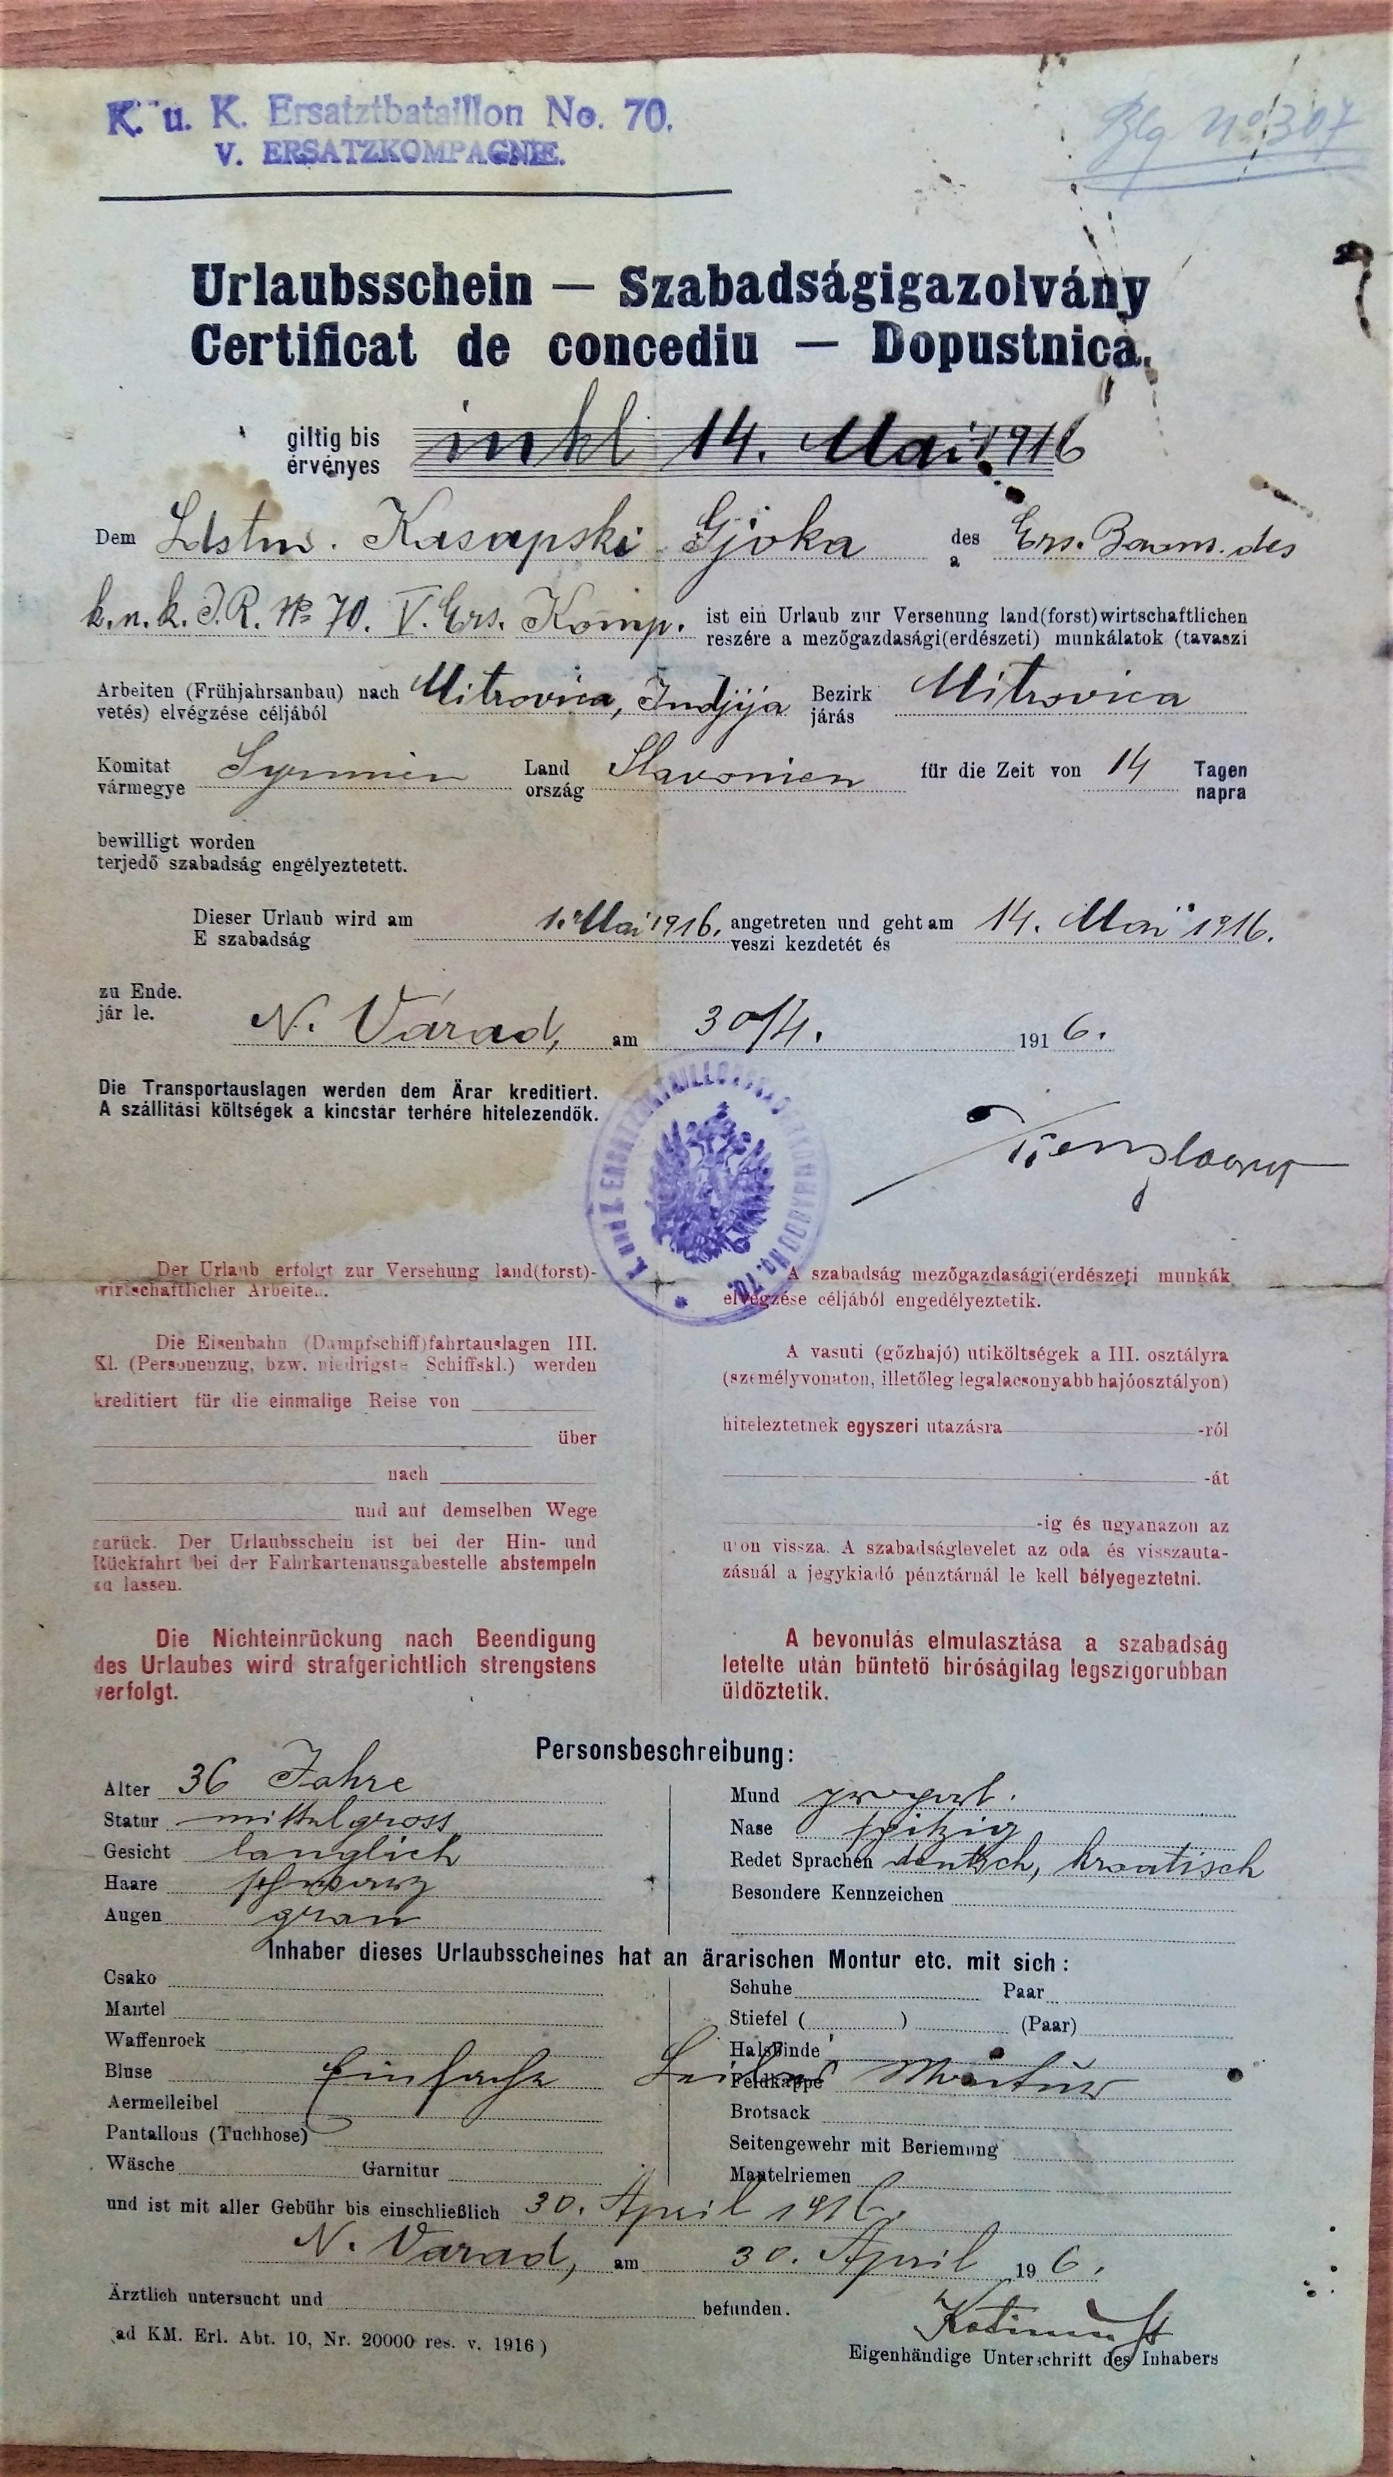 K. u. K. Ersatztbataillon No. 70.
V. ERSATZKOMPAGNIE.
Blg No 307
Urlaubsschein — Szabadságigazolvány
Certificat de concediu — Dopustnica.
giltig bis inkl 14. Mai 1916
érvényes
Dem Ldstm. Kasapski Gjoka des Ers. Baons. des
a
k. u. k. I. R. No 70. V. Ers. Komp. ist ein Urlaub zur Versehung land(forst)wirtschaftlichen
reszére a mezőgazdasági(erdészeti) munkálatok (tavaszi
Arbeiten (Frühjahrsanbau) nach Mitrovica, Indjija Bezirk Mitrovica
vetés) elvégzése céljából járás
Komitat Syrmien Land Slavonien für die Zeit von 14 Tagen
vármegye ország napra
bewilligt worden
terjedő szabadság engélyeztetett.
Dieser Urlaub wird am 1. Mai 1916. angetreten und geht am 14. Mai 1916.
E szabadság veszi kezdetét és
zu Ende.
jár le.
N. Várad, am 30/4. 1916.
Die Transportauslagen werden dem Ärar kreditiert.
A szállitási költségek a kincstár terhére hitelezendők.
K. und K. ERSATZBATAILLONSKOMMANDO No. 70.
Der Urlaub erfolgt zur Versehung land(forst)-
wirtschaftlicher Arbeite...
Die Eisenbahn (Dampfschiff)fahrtauslagen III.
Kl. (Personenzug, bzw. niedrigste Schiffskl.) werden
kreditiert für die einmalige Reise von
über
nach
und auf demselben Wege
zurück. Der Urlaubsschein ist bei der Hin- und
Rückfahrt bei der Fahrkartenausgabestelle abstempeln
zu lassen.
Die Nichteinrückung nach Beendigung
des Urlaubes wird strafgerichtlich strengstens
verfolgt.
A szabadság mezőgazdasági(erdészeti munkák
elvégzése céljából engedélyeztetik.
A vasuti (gőzhajó) utiköltségek a III. osztályra
(személyvonaton, illetőleg legalacsonyabb hajóosztályon)
hiteleztetnek egyszeri utazásra -ról
-át
-ig és ugyanazon az
uton vissza. A szabadságlevelet az oda és visszauta-
zásnál a jegykiadó pénztárnál le kell bélyegeztetni.
A bevonulás elmulasztása a szabadság
letelte után büntető biróságilag legszigorubban
üldöztetik.
Personsbeschreibung:
Alter 36 Jahre
Statur mittelgross
Gesicht länglich
Haare schwarz
Augen grau
Mund proport.
Nase spitzig
Redet Sprachen deutsch, kroatisch
Besondere Kennzeichen
Inhaber dieses Urlaubsscheines hat an ärarischen Montur etc. mit sich:
Csako
Mantel
Waffenrock
Bluse Einfache Montur
Aermelleibel
Pantallons (Tuchhose)
Wäsche Garnitur
Schuhe Paar
Stiefel ( ) (Paar)
Halsbinde
Feldkappe
Brotsack
Seitengewehr mit Beriemung
Mantelriemen
und ist mit aller Gebühr bis einschließlich 30. April 1916.
N. Varad, am 30. April 19 6.
Ärztlich untersucht und befunden.
ad KM. Erl. Abt. 10, Nr. 20000 res. v. 1916)
Eigenhändige Unterschrift des Inhabers